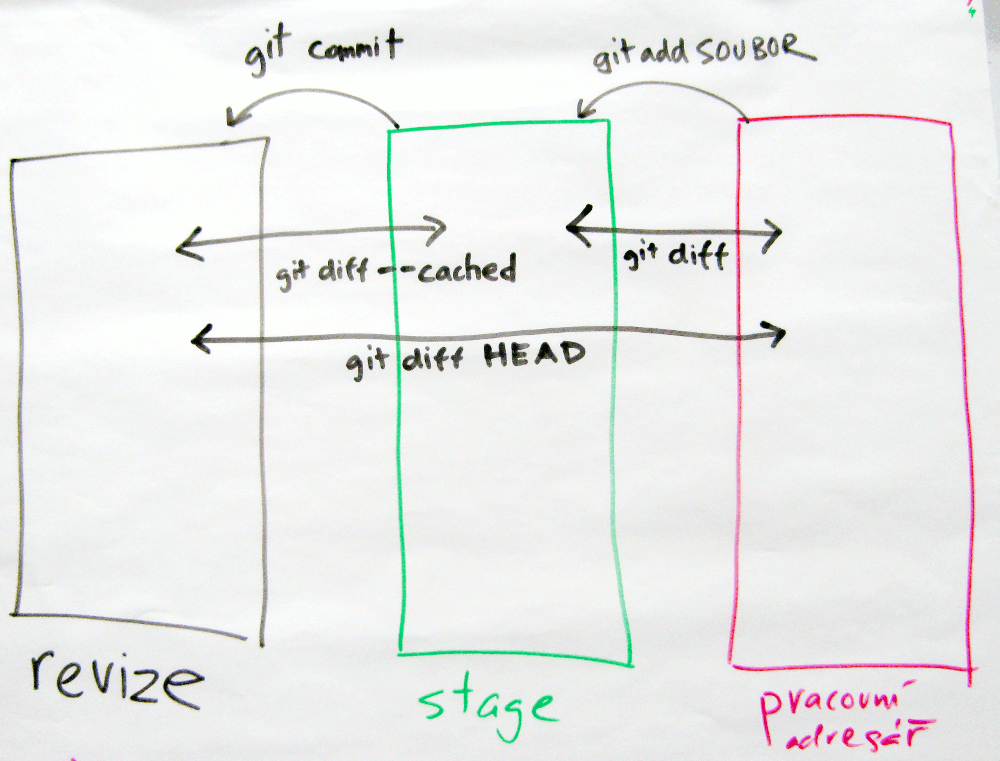 git commit
git add SOUBOR
git diff
git diff --cached
git diff HEAD
revize
stage
pracovní
adresář